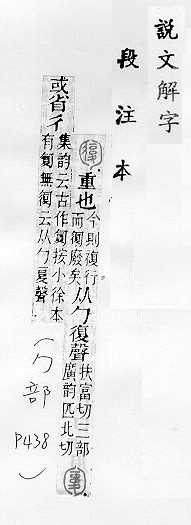 說文解字
段注本
重也
今則複行
而廢矣
从勹復聲
扶富切三部
廣韵匹北切
或省彳
集韵云古作按小徐本
有無云从勹复聲
(勹部
P438)